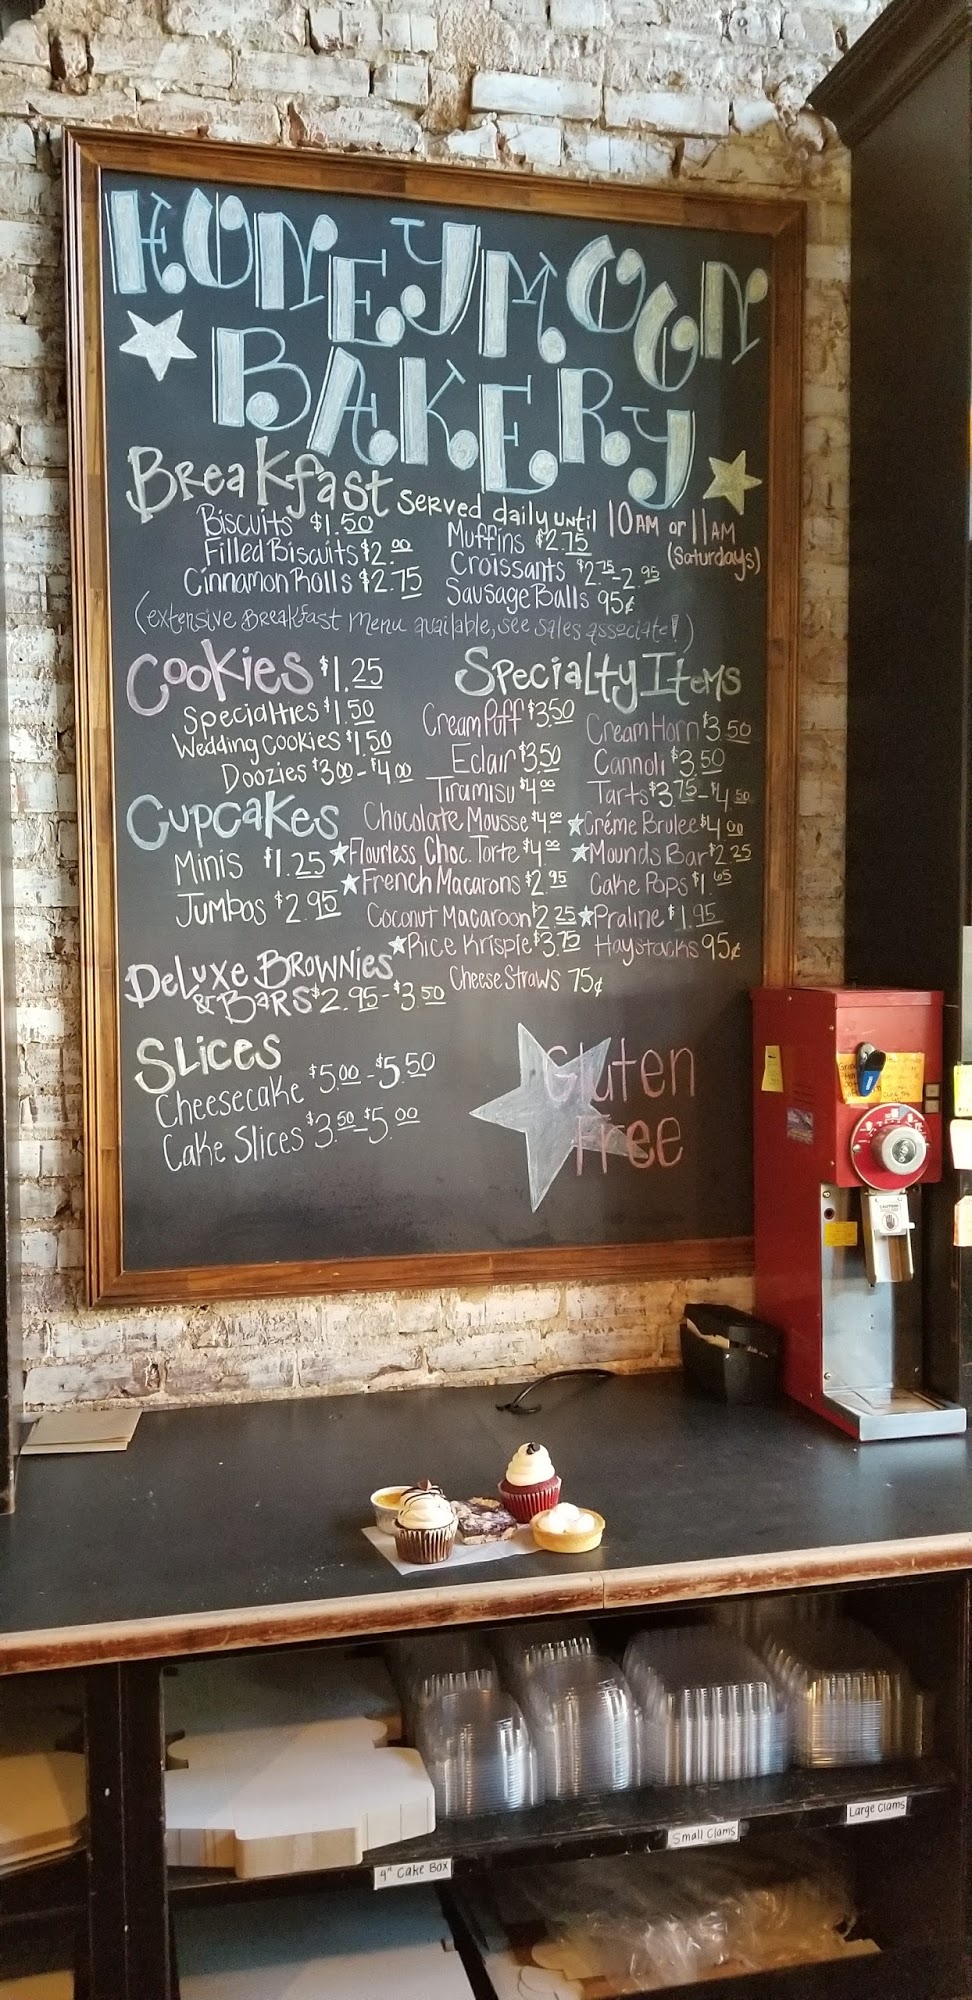 HONEYMOON
BAKERY
Breakfast served daily until 10AM or 11AM
(Saturdays)
Biscuits $1.50
Filled Biscuits $2.00
Cinnamon Rolls $2.75
Muffins $2.75
Croissants $2.75-2.95
Sausage Balls 95¢
(extensive Breakfast menu available, see sales associate!)
Cookies $1.25
Specialties $1.50
Wedding Cookies $1.50
Doozies $3.00-$4.00
Cupcakes
Minis $1.25
Jumbos $2.95
DeLuxe Brownies
& Bars $2.95-$3.50
Slices
Cheesecake $5.00-$5.50
Cake Slices $3.50-$5.00
Specialty Items
Cream Puff $3.50
Cream Horn $3.50
Eclair $3.50
Cannoli $3.50
Tiramisu $4.00
Tarts $3.75-$4.50
Chocolate Mousse $4.00
★Créme Brulee $4.00
★Flourless Choc. Torte $4.00
★Mounds Bar $2.25
★French Macarons $2.95
Cake Pops $1.65
Coconut Macaroon $2.25
★Praline $1.95
★Rice Krispie $3.75
Haystacks 95¢
Cheese Straws 75¢
Gluten
Free
CAUTION
4" Cake Box
Small Clams
Large Clams